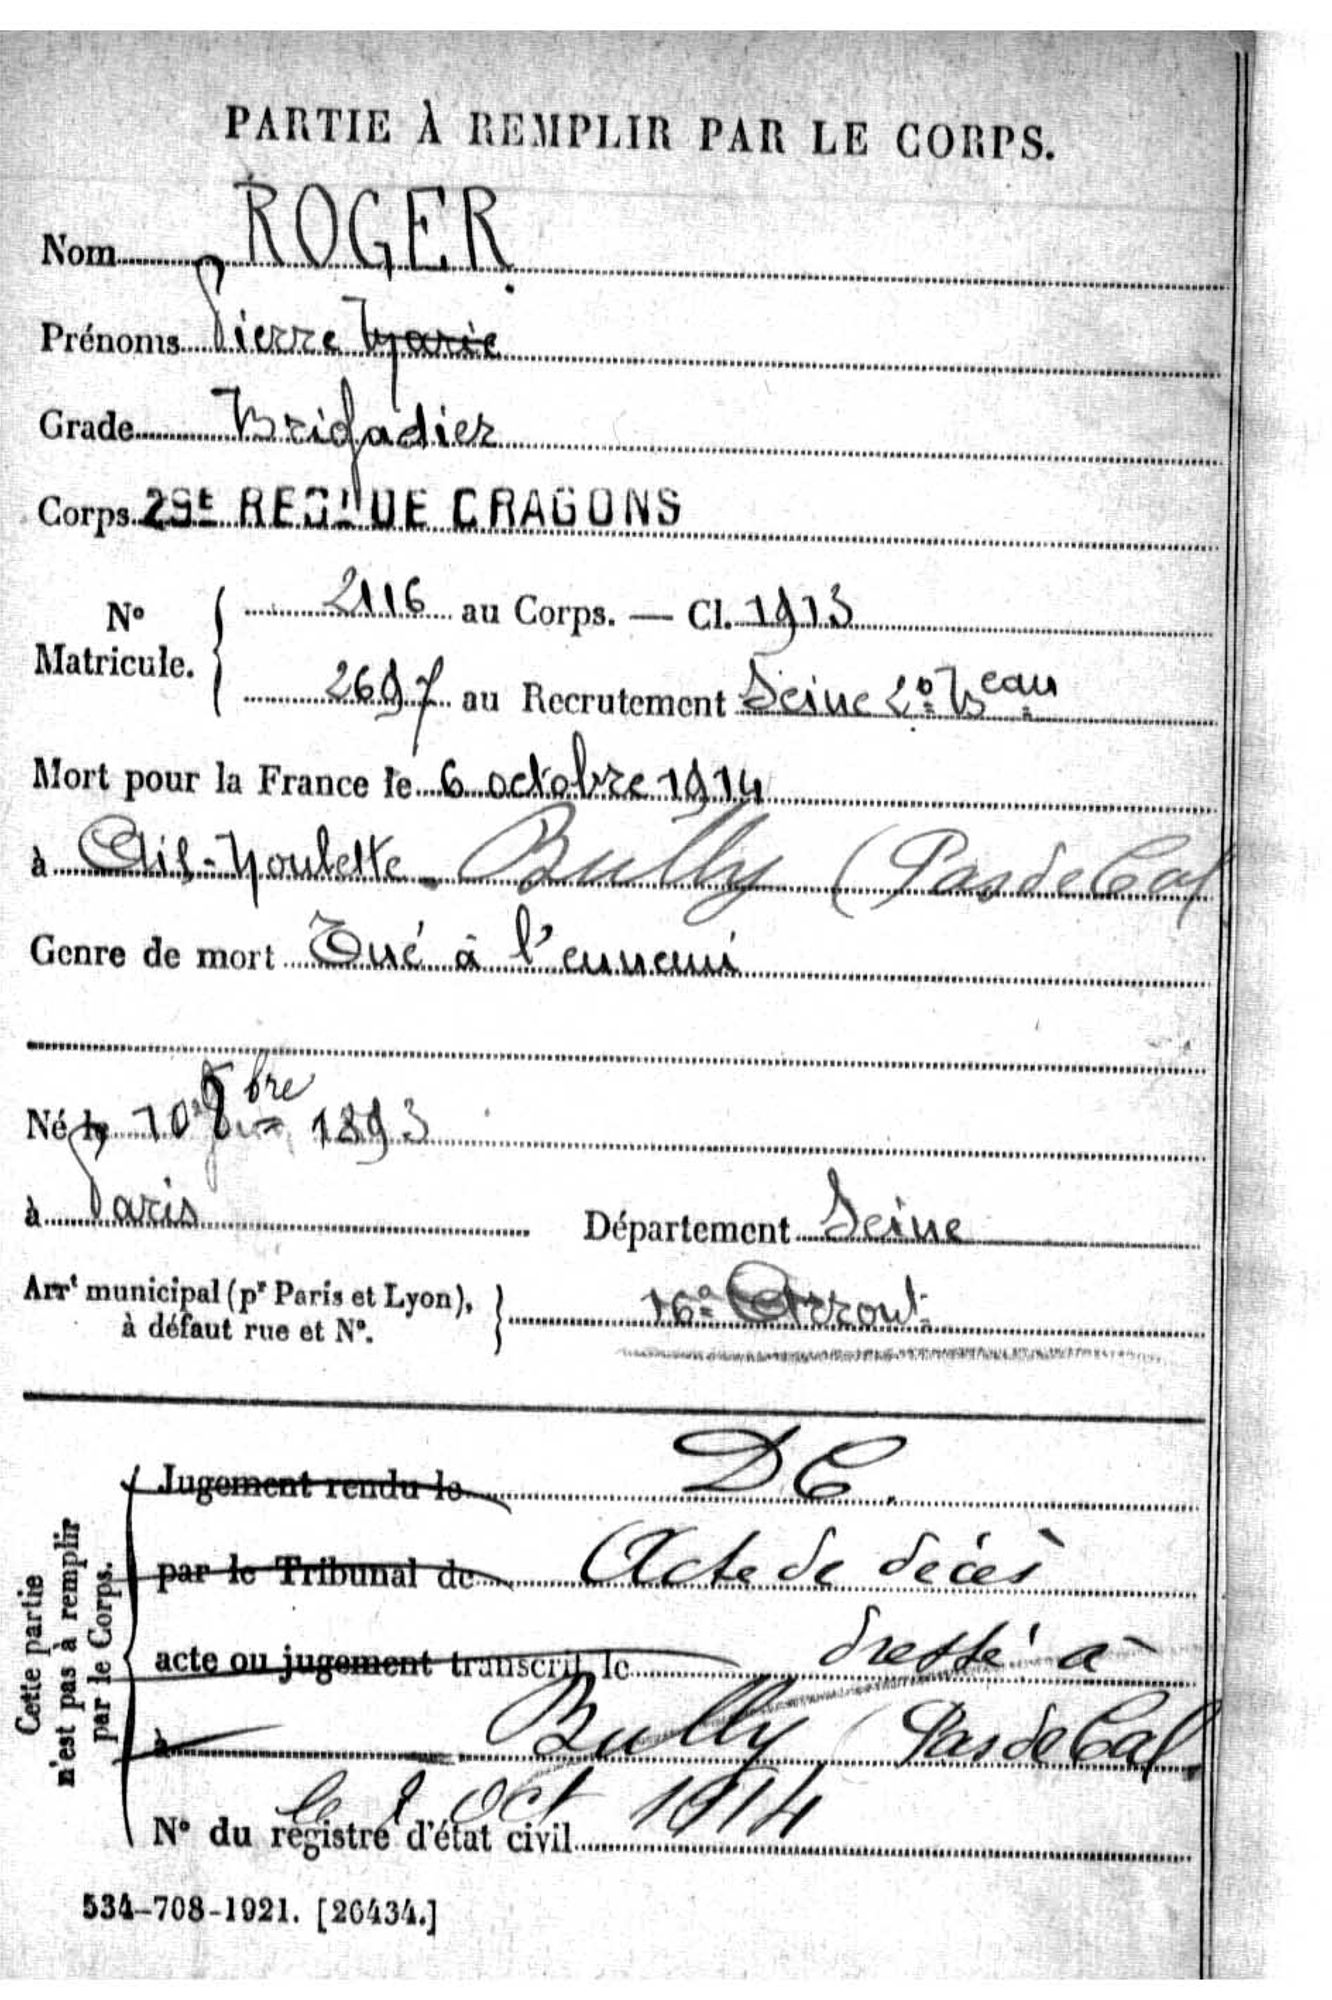 PARTIE À REMPLIR PAR LE CORPS.
Nom ROGER.
Prénoms Pierre Marie
Grade Brigadier
Corps 29E REGt DE DRAGONS
N° Matricule. { 2116 au Corps. — Cl. 1913
2697 au Recrutement Seine 2e Beau
Mort pour la France le 6 octobre 1914
à Aix-Noulette. Bully (Pas de Cal
Genre de mort Tué à l'ennemi
Né le 10 8bre 1893
à Paris Département Seine
Arrt municipal (pr Paris et Lyon), à défaut rue et N°. } 16e Arront
Cette partie n'est pas à remplir par le Corps.
Jugement rendu le DC.
par le Tribunal de Acte de décès
acte ou jugement transcrit le dressé à
à Bully (Pas de Cal
le oct 1914
N° du registre d'état civil
534-708-1921. [26434.]